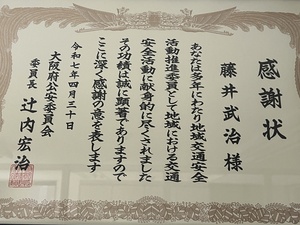 感謝状
藤井武治様
あなたは多年にわたり地域交通安全
活動推進委員として地域における交通
安全活動に献身的に尽くされました
その功績は誠に顕著でありますので
ここに深く感謝の意を表します
令和七年四月三十日
大阪府公安委員会
委員長 辻内宏治